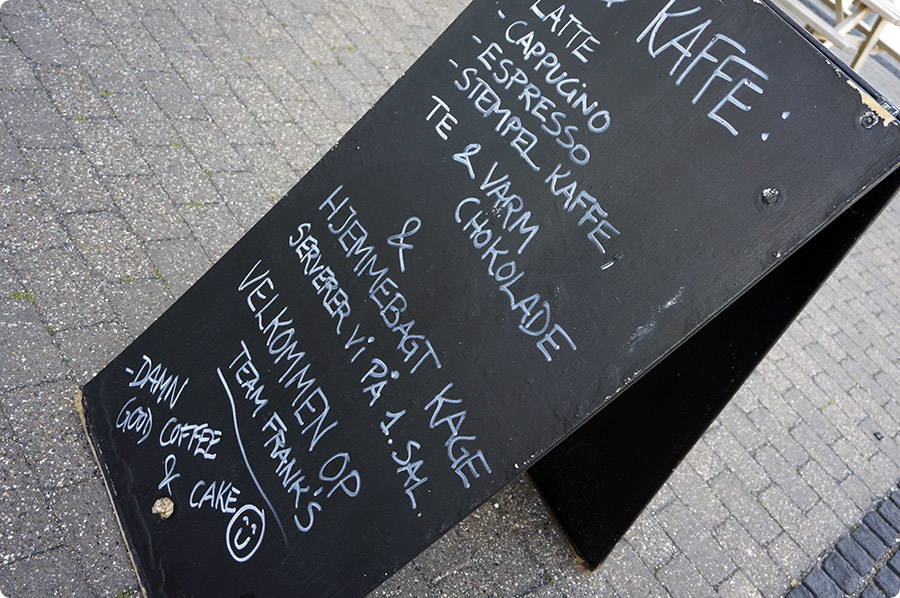 KAFFE:
LATTE
- CAPPUCINO
- ESPRESSO
- STEMPEL KAFFE,
TE & VARM
CHOKOLADE
&
HJEMMEBAGT KAGE
SERVERER VI PÅ 1. SAL.
VELKOMMEN OP
TEAM FRANK'S
- DAMN
GOOD COFFEE
& CAKE